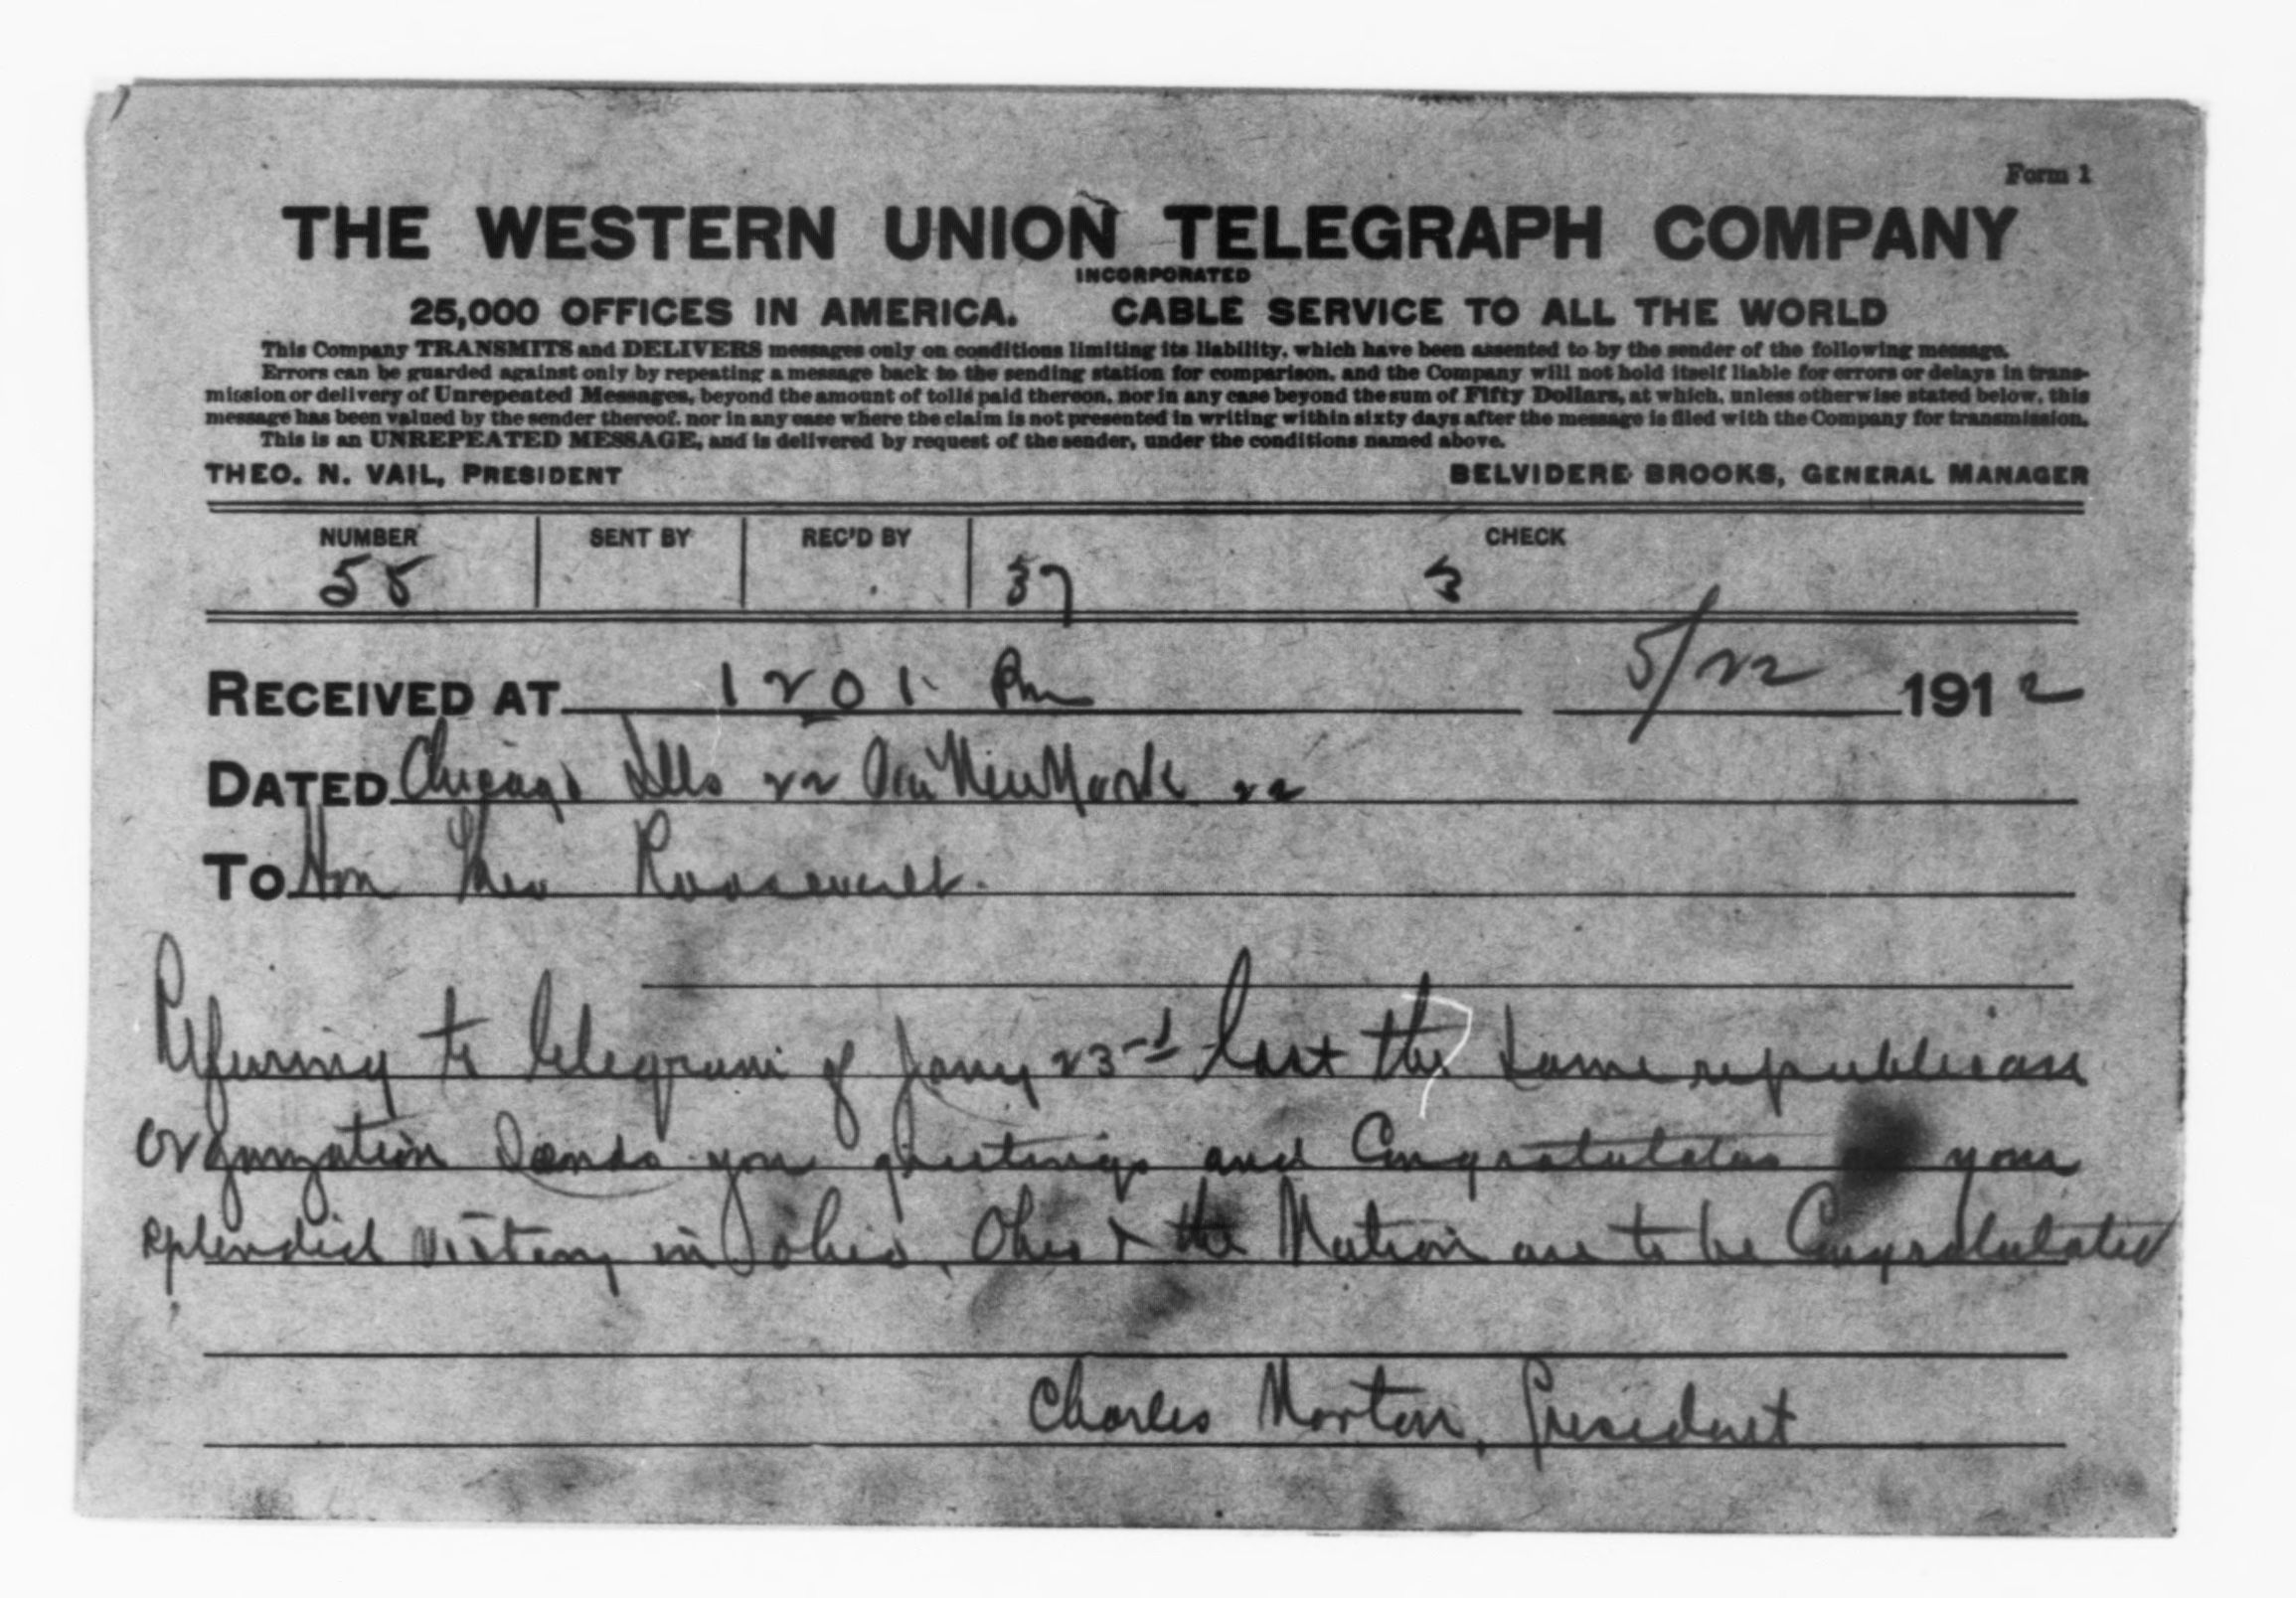 Form 1
THE WESTERN UNION TELEGRAPH COMPANY
INCORPORATED
25,000 OFFICES IN AMERICA. CABLE SERVICE TO ALL THE WORLD
This Company TRANSMITS and DELIVERS messages only on conditions limiting its liability, which have been assented to by the sender of the following message.
Errors can be guarded against only by repeating a message back to the sending station for comparison, and the Company will not hold itself liable for errors or delays in trans-
mission or delivery of Unrepeated Messages, beyond the amount of tolls paid thereon, nor in any case beyond the sum of Fifty Dollars, at which, unless otherwise stated below, this
message has been valued by the sender thereof, nor in any case where the claim is not presented in writing within sixty days after the message is filed with the Company for transmission.
This is an UNREPEATED MESSAGE, and is delivered by request of the sender, under the conditions named above.
THEO. N. VAIL, PRESIDENT BELVIDERE BROOKS, GENERAL MANAGER
NUMBER SENT BY REC'D BY CHECK
55 37 3
RECEIVED AT 1201 Pm 5/22 1912
DATED Chicago Ills 22 Via New York 22
TO Hon Theo Roosevelt.
Referring to telegram of Jany 23rd last the same republican
organization sends you greetings and Congratulates your
splendid victory in ohio, Ohio & the Nation are to be Congratulated
Charles Morton, President